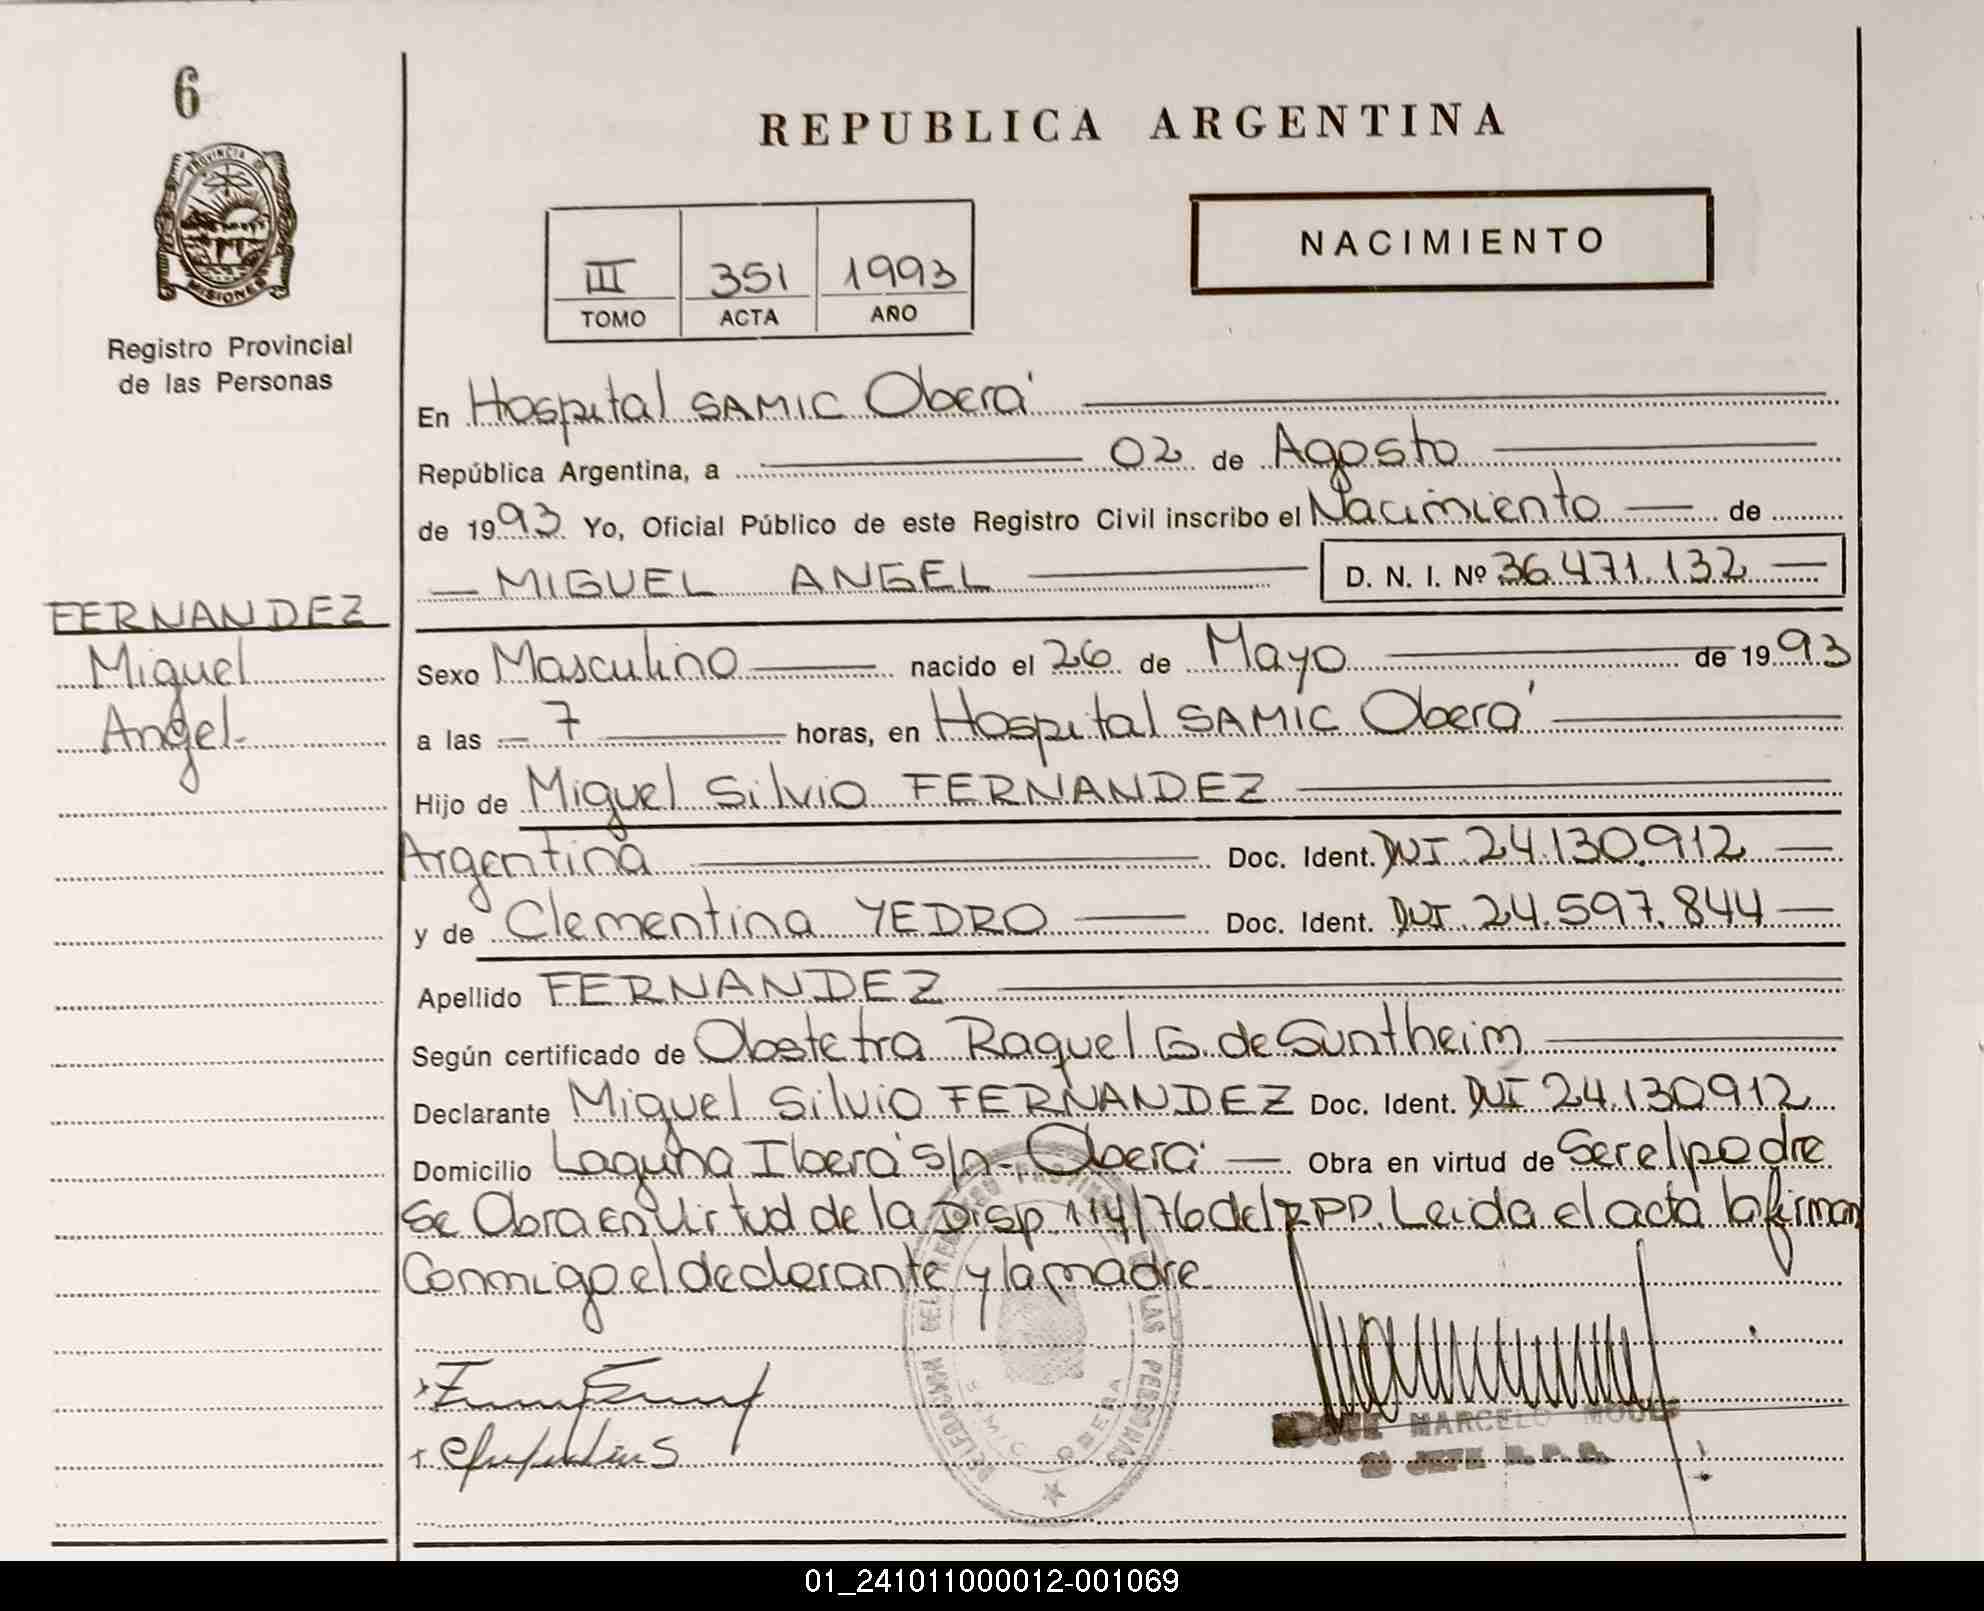 6
PROVINCIA DE
MISIONES
Registro Provincial
de las Personas
REPUBLICA ARGENTINA
III 351 1993
TOMO ACTA AÑO
NACIMIENTO
En Hospital SAMIC Oberá
República Argentina, a 02 de Agosto
de 1993 Yo, Oficial Público de este Registro Civil inscribo el Nacimiento de
MIGUEL ANGEL D. N. I. Nº 36.471.132
FERNANDEZ
Miguel
Angel.
Sexo Masculino nacido el 26 de Mayo de 1993
a las 7 horas, en Hospital SAMIC Oberá
Hijo de Miguel Silvio FERNANDEZ
Argentina Doc. Ident. DNI 24.130.912
y de Clementina YEDRO Doc. Ident. DNI 24.597.844
Apellido FERNANDEZ
Según certificado de Obstetra Raquel G. de Suntheim
Declarante Miguel Silvio FERNANDEZ Doc. Ident. DNI 24.130912
Domicilio Laguna Iberá s/n - Oberá Obra en virtud de Ser el padre
Se Obra en Virtud de la Disp. 114/76 del RPP. Leida el acta la firman
Conmigo el declarante y la madre
DELEGACION DEL LAS PERSONAS
SAMIC OBERA
ROQUE MARCELO
JEFE R.P.P.
01_241011000012-001069